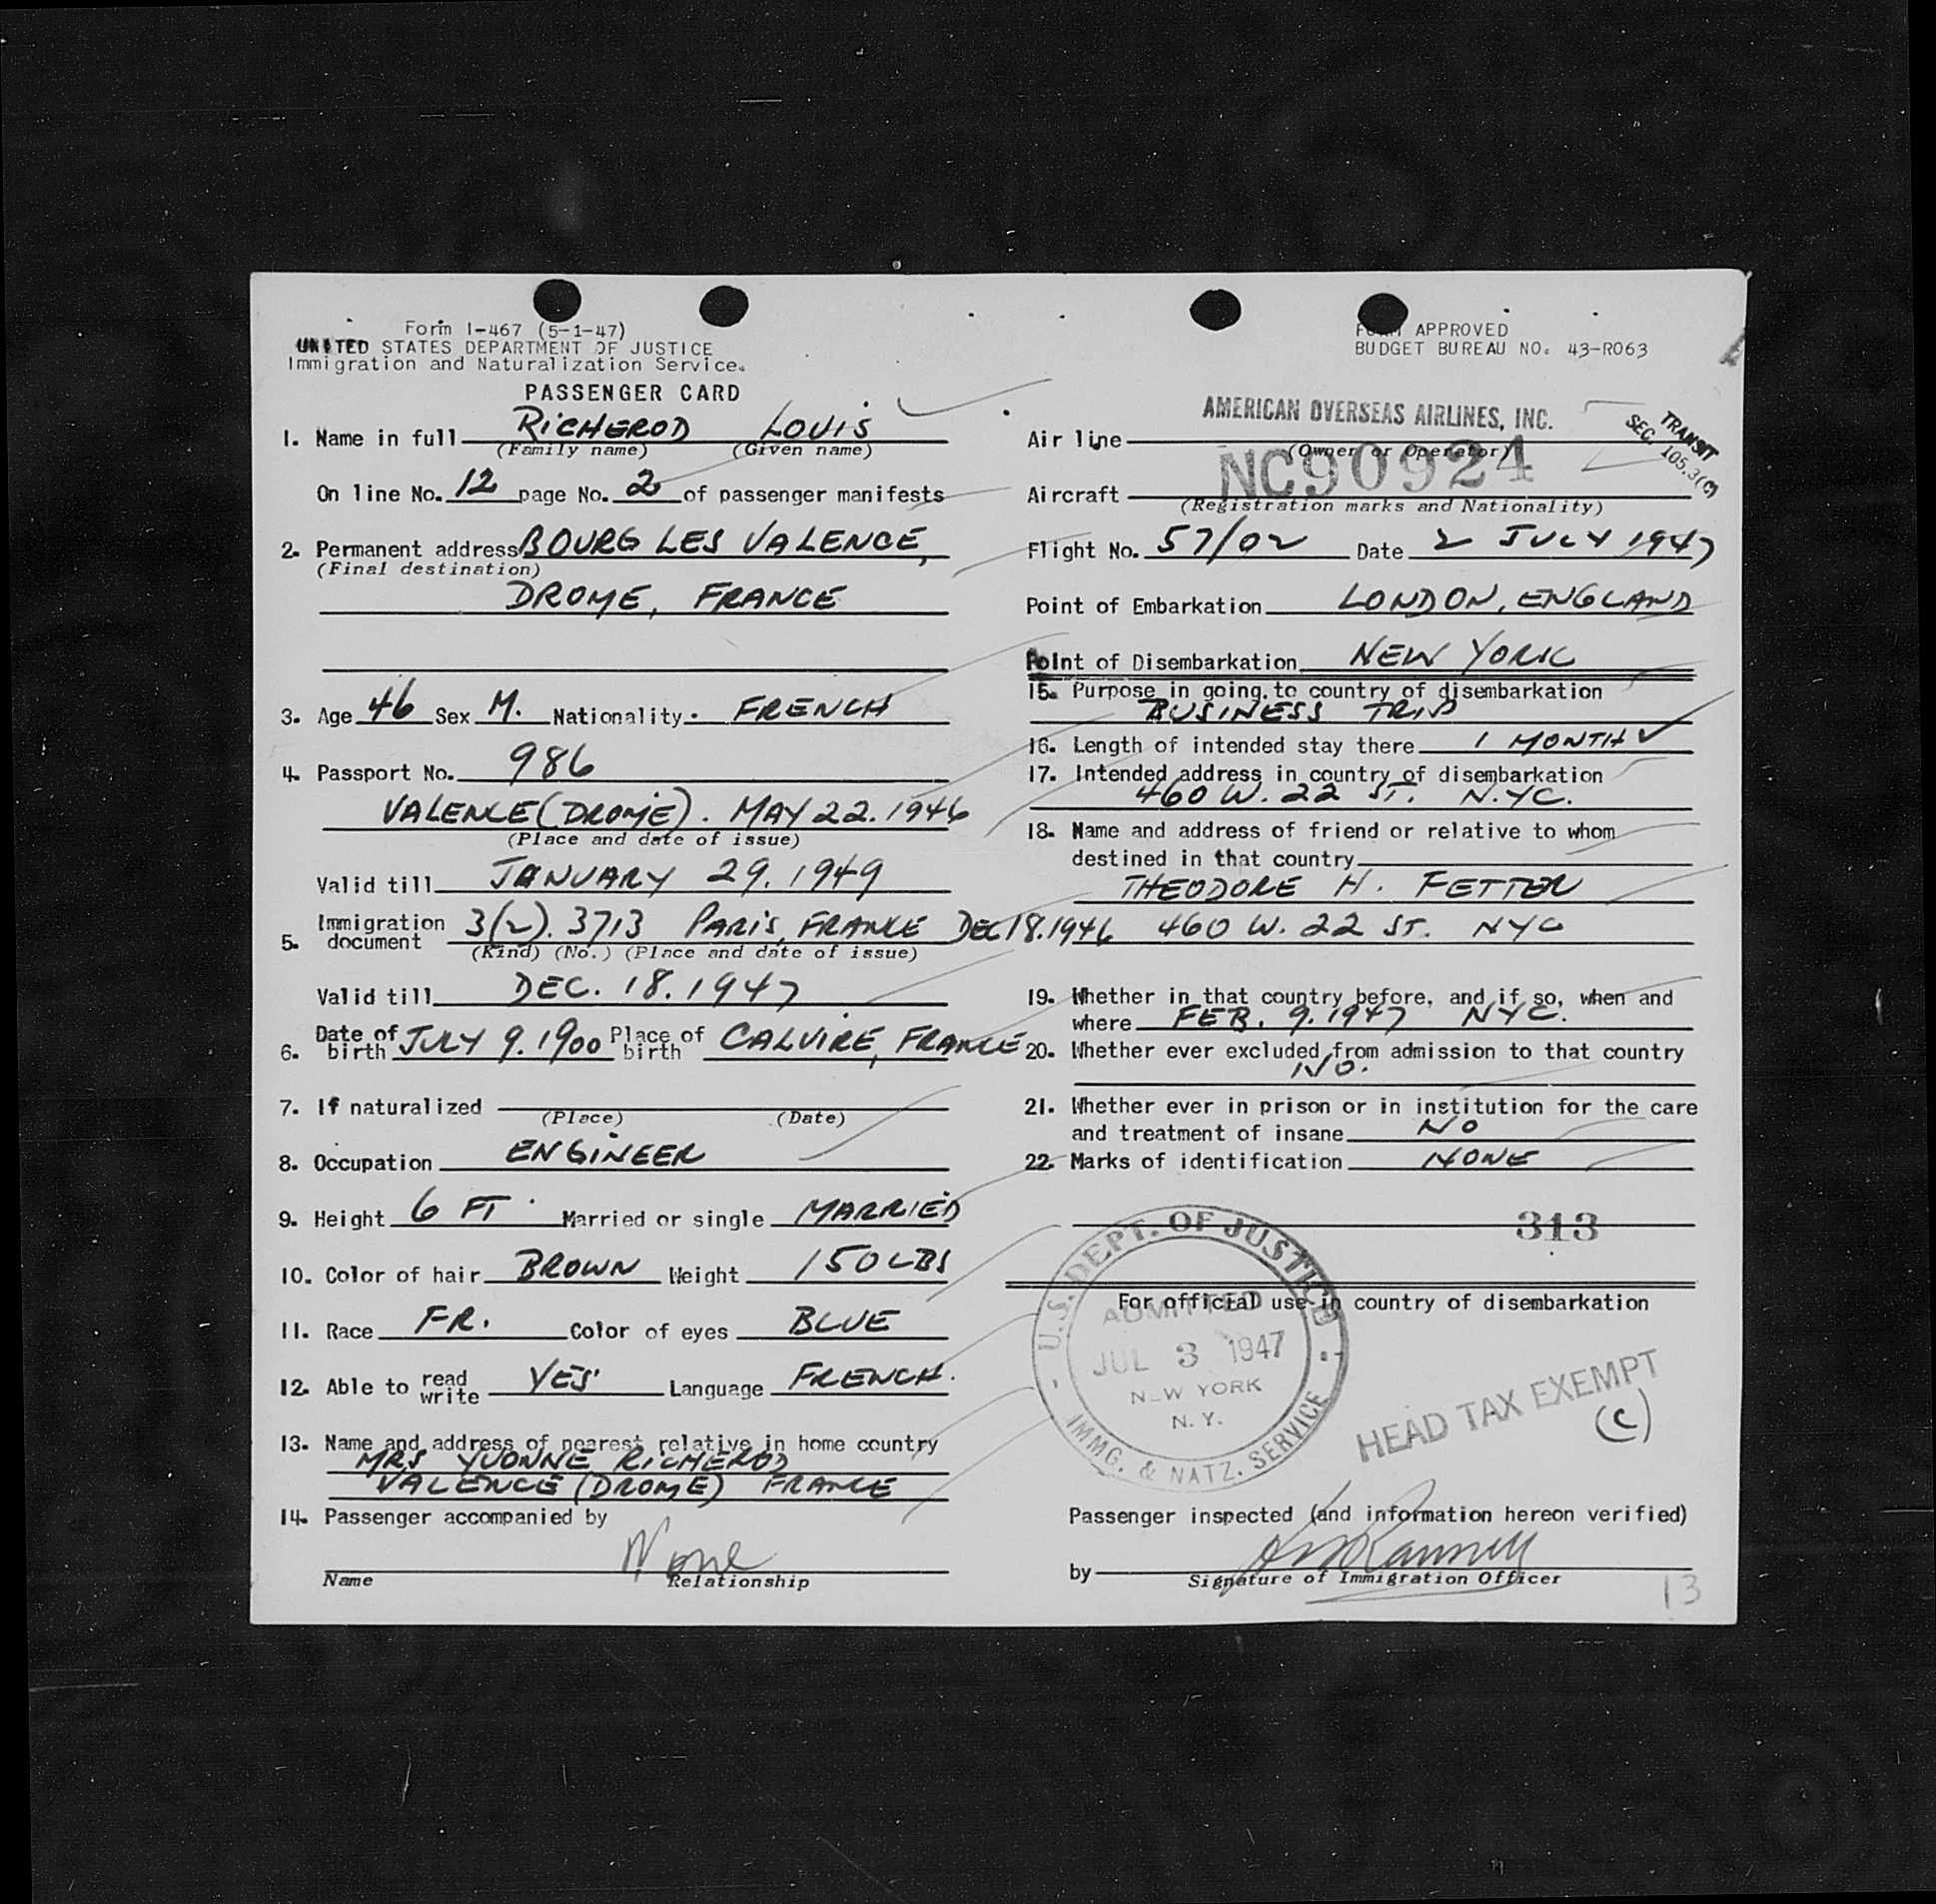 Form I-467 (5-1-47)
UNITED STATES DEPARTMENT OF JUSTICE
Immigration and Naturalization Service.
PASSENGER CARD
1. Name in full RICHEROD LOUIS
(Family name) (Given name)
On line No. 12 page No. 2 of passenger manifests
2. Permanent address BOURG LES VALENCE,
(Final destination)
DROME, FRANCE
3. Age 46 Sex M. Nationality. FRENCH
4. Passport No. 986
VALENCE (DROME). MAY 22. 1946
(Place and date of issue)
Valid till JANUARY 29. 1949
5. Immigration document 3(2). 3713 PARIS, FRANCE DEC 18. 1946
(Kind) (No.) (Place and date of issue)
Valid till DEC. 18. 1947
6. Date of birth JULY 9. 1900 Place of birth CALVIRE, FRANCE
7. If naturalized
(Place) (Date)
8. Occupation ENGINEER
9. Height 6 FT. Married or single MARRIED
10. Color of hair BROWN Weight 150 LBS
11. Race FR. Color of eyes BLUE
12. Able to read write YES Language FRENCH.
13. Name and address of nearest relative in home country
MRS YVONNE RICHEROD
VALENCE (DROME) FRANCE
14. Passenger accompanied by
None
Name Relationship
FORM APPROVED
BUDGET BUREAU NO. 43-R063
AMERICAN OVERSEAS AIRLINES, INC.
TRANSIT
SEC. 105.3(C)
Air line
(Owner or Operator)
Aircraft NC90924
(Registration marks and Nationality)
Flight No. 57/02 Date 2 JULY 1947
Point of Embarkation LONDON, ENGLAND
Point of Disembarkation NEW YORK
15. Purpose in going to country of disembarkation
BUSINESS TRIP
16. Length of intended stay there 1 MONTH
17. Intended address in country of disembarkation
460 W. 22 ST. N.Y.C.
18. Name and address of friend or relative to whom
destined in that country
THEODORE H. FETTER
460 W. 22 ST. NYC
19. Whether in that country before, and if so, when and
where FEB. 9. 1947 NYC.
20. Whether ever excluded from admission to that country
NO.
21. Whether ever in prison or in institution for the care
and treatment of insane NO
22. Marks of identification NONE
313
For official use in country of disembarkation
U.S. DEPT. OF JUSTICE
ADMITTED
JUL 3 1947
NEW YORK
N.Y.
IMMG. & NATZ. SERVICE
HEAD TAX EXEMPT
(C)
Passenger inspected (and information hereon verified)
by
Signature of Immigration Officer
13